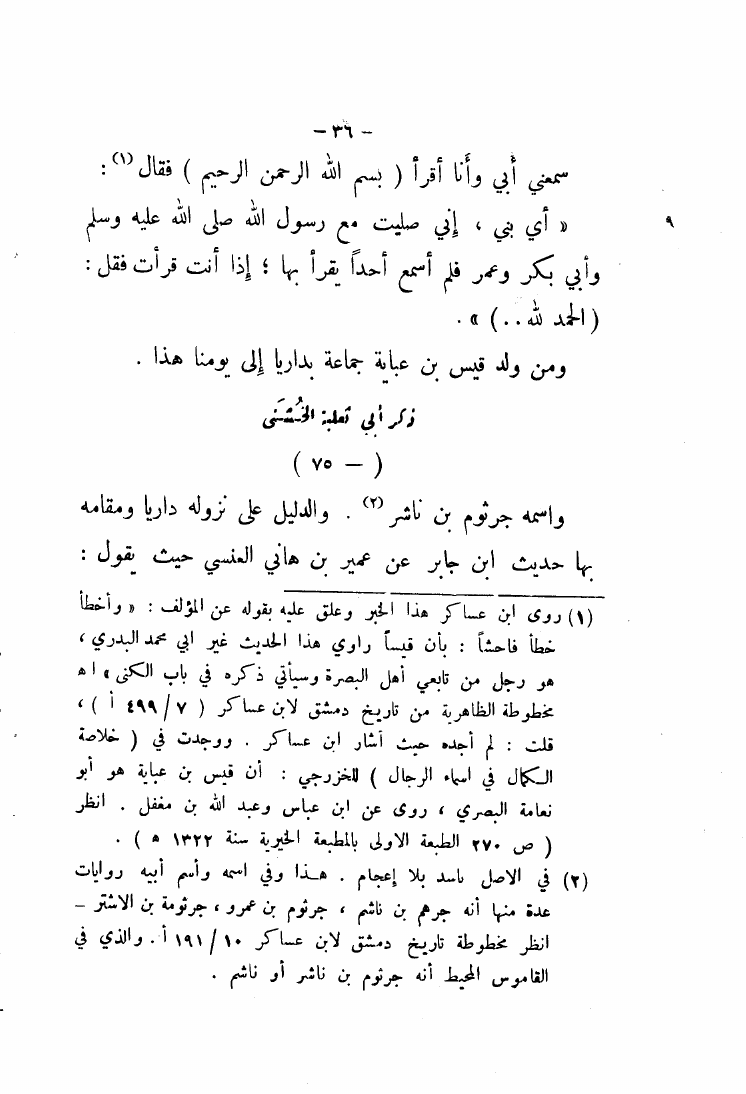 - ٣٦ -
سمعني أبي وأنا أقرأ ( بسم الله الرحمن الرحيم ) فقال (١) :
« أي بني ، إني صليت مع رسول الله صلى الله عليه وسلم
٩
وأبي بكر وعمر فلم أسمع أحداً يقرأ بها ؛ إذا أنت قرأت فقل :
( الحمد لله . . ) » .
ومن ولد قيس بن عباية جماعة بداريا إلى يومنا هذا .
ذكر أبي ثعلبة الخُشَني
( ٧٥ – )
واسمه جرثوم بن ناشر (٢) . والدليل على نزوله داريا ومقامه
بها حديث ابن جابر عن عمير بن هاني العنسي حيث يقول :
(١) روى ابن عساكر هذا الخبر وعلق عليه بقوله عن المؤلف : « وأخطأ
خطأ فاحشاً : بأن قيساً راوي هذا الحديث غير ابي محمد البدري ،
هو رجل من تابعي أهل البصرة وسيأتي ذكره في باب الكنى » ا ه
مخطوطة الظاهرية من تاريخ دمشق لابن عساكر ( ٧ / ٤٩٩ أ ) ،
قلت : لم أجده حيث أشار ابن عساكر . ووجدت في ( خلاصة
الكمال في اسماء الرجال ) للخزرجي : أن قيس بن عباية هو أبو
نعامة البصري ، روى عن ابن عباس وعبد الله بن مغفل . انظر
( ص ٢٧٠ الطبعة الاولى بالمطبعة الخيرية سنة ١٣٢٢ ه ) .
(٢) في الاصل باسد بلا إعجام . هذا وفي اسمه وأسم أبيه روايات
عدة منها أنه جرهم بن ناشم ، جرثوم بن عمرو ، جرثومة بن الاشتر –
انظر مخطوطة تاريخ دمشق لابن عساكر ١٠ / ١٩١ أ . والذي في
القاموس المحيط أنه جرثوم بن ناشر أو ناشم .